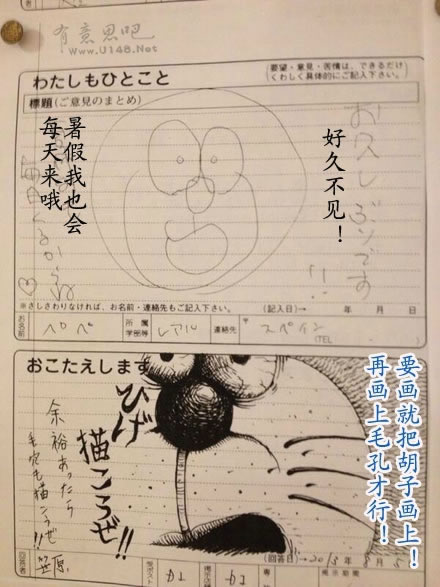 有意思吧
www.U148.Net
わたしもひとこと
(要望・意見・苦情は、できるだけ
くわしく具体的にご記入下さい。)
標題(ご意見のまとめ)
お久しぶりです!!
好久不见！
暑假我也会
每天来哦
※さしさわりなければ、お名前・連絡先もご記入下さい。
(記入日)→ 年 月 日
お名前
ペペ
所属
学部等
レアル
連絡先
〒
スペイン
(TEL
おこたえします
ひげ
描こうぜ!!
余裕あったら
毛穴も描こうぜ!!
要画就把胡子画上！
再画上毛孔才行！
回答者
(回答日)→2013 8 5
掲示期間